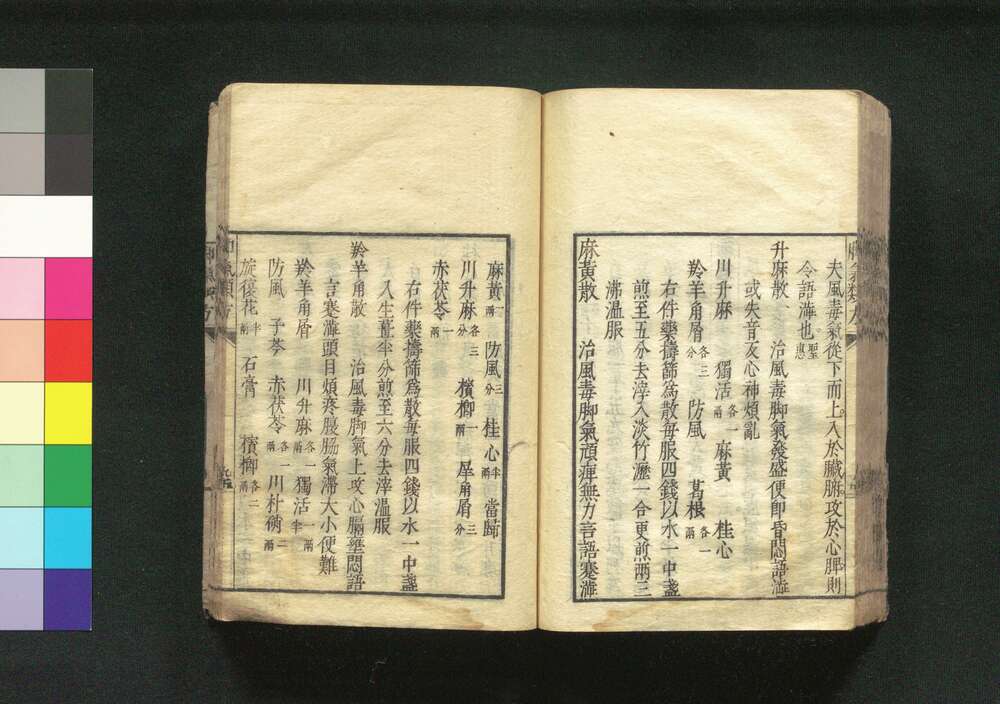 夫風毒氣從下而上入於臟腑攻於心脾則
令語澁也聖惠
升麻散　治風毒脚氣發盛便即昏悶語澁
或失音及心神煩亂
川升麻　獨活各一兩　麻黃　桂心
羚羊角屑各三分　防風　葛根各一兩
右件藥擣篩為散每服四錢以水一中盞
煎至五分去滓入淡竹瀝一合更煎兩三
沸温服
麻黃散　治風毒脚氣頑痺無力言語蹇澁
麻黃一兩　防風三分　桂心半兩　當歸
川升麻各三分　檳榔一兩　犀角屑三分
赤茯苓一兩
右件藥擣篩為散每服四錢以水一中盞
入生薑半分煎至六分去滓温服
羚羊角散　治風毒脚氣上攻心膈壅悶語
言蹇澁頭目煩疼腹脇氣滯大小便難
羚羊角屑　川升麻各一兩　獨活一兩半
防風　子芩　赤茯苓各一兩　川朴硝二兩
旋復花半兩　石膏　檳榔各二兩